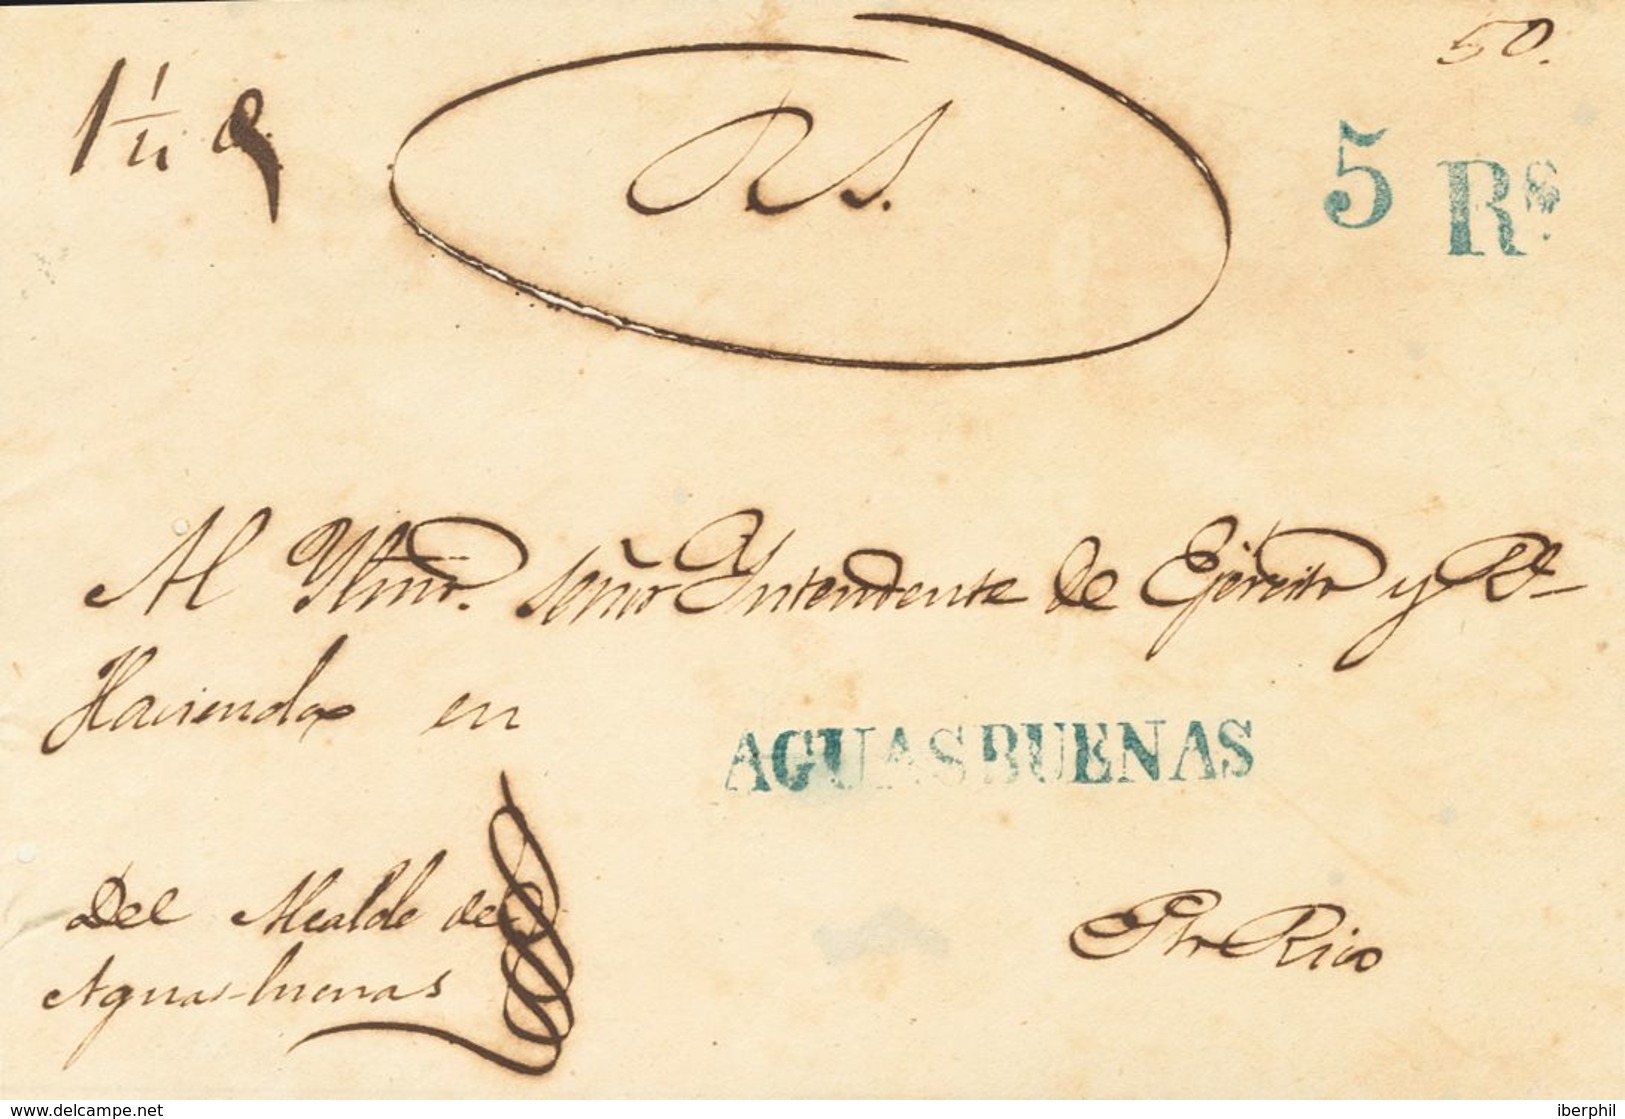 50.
R S.
5 Rs.
Al Yltmo. señor Yntendente de Ejército y Rl
Hacienda en
AGUASBUENAS
Del Alcalde de
Aguas-buenas
Pto Rico
www.delcampe.net
iberphil